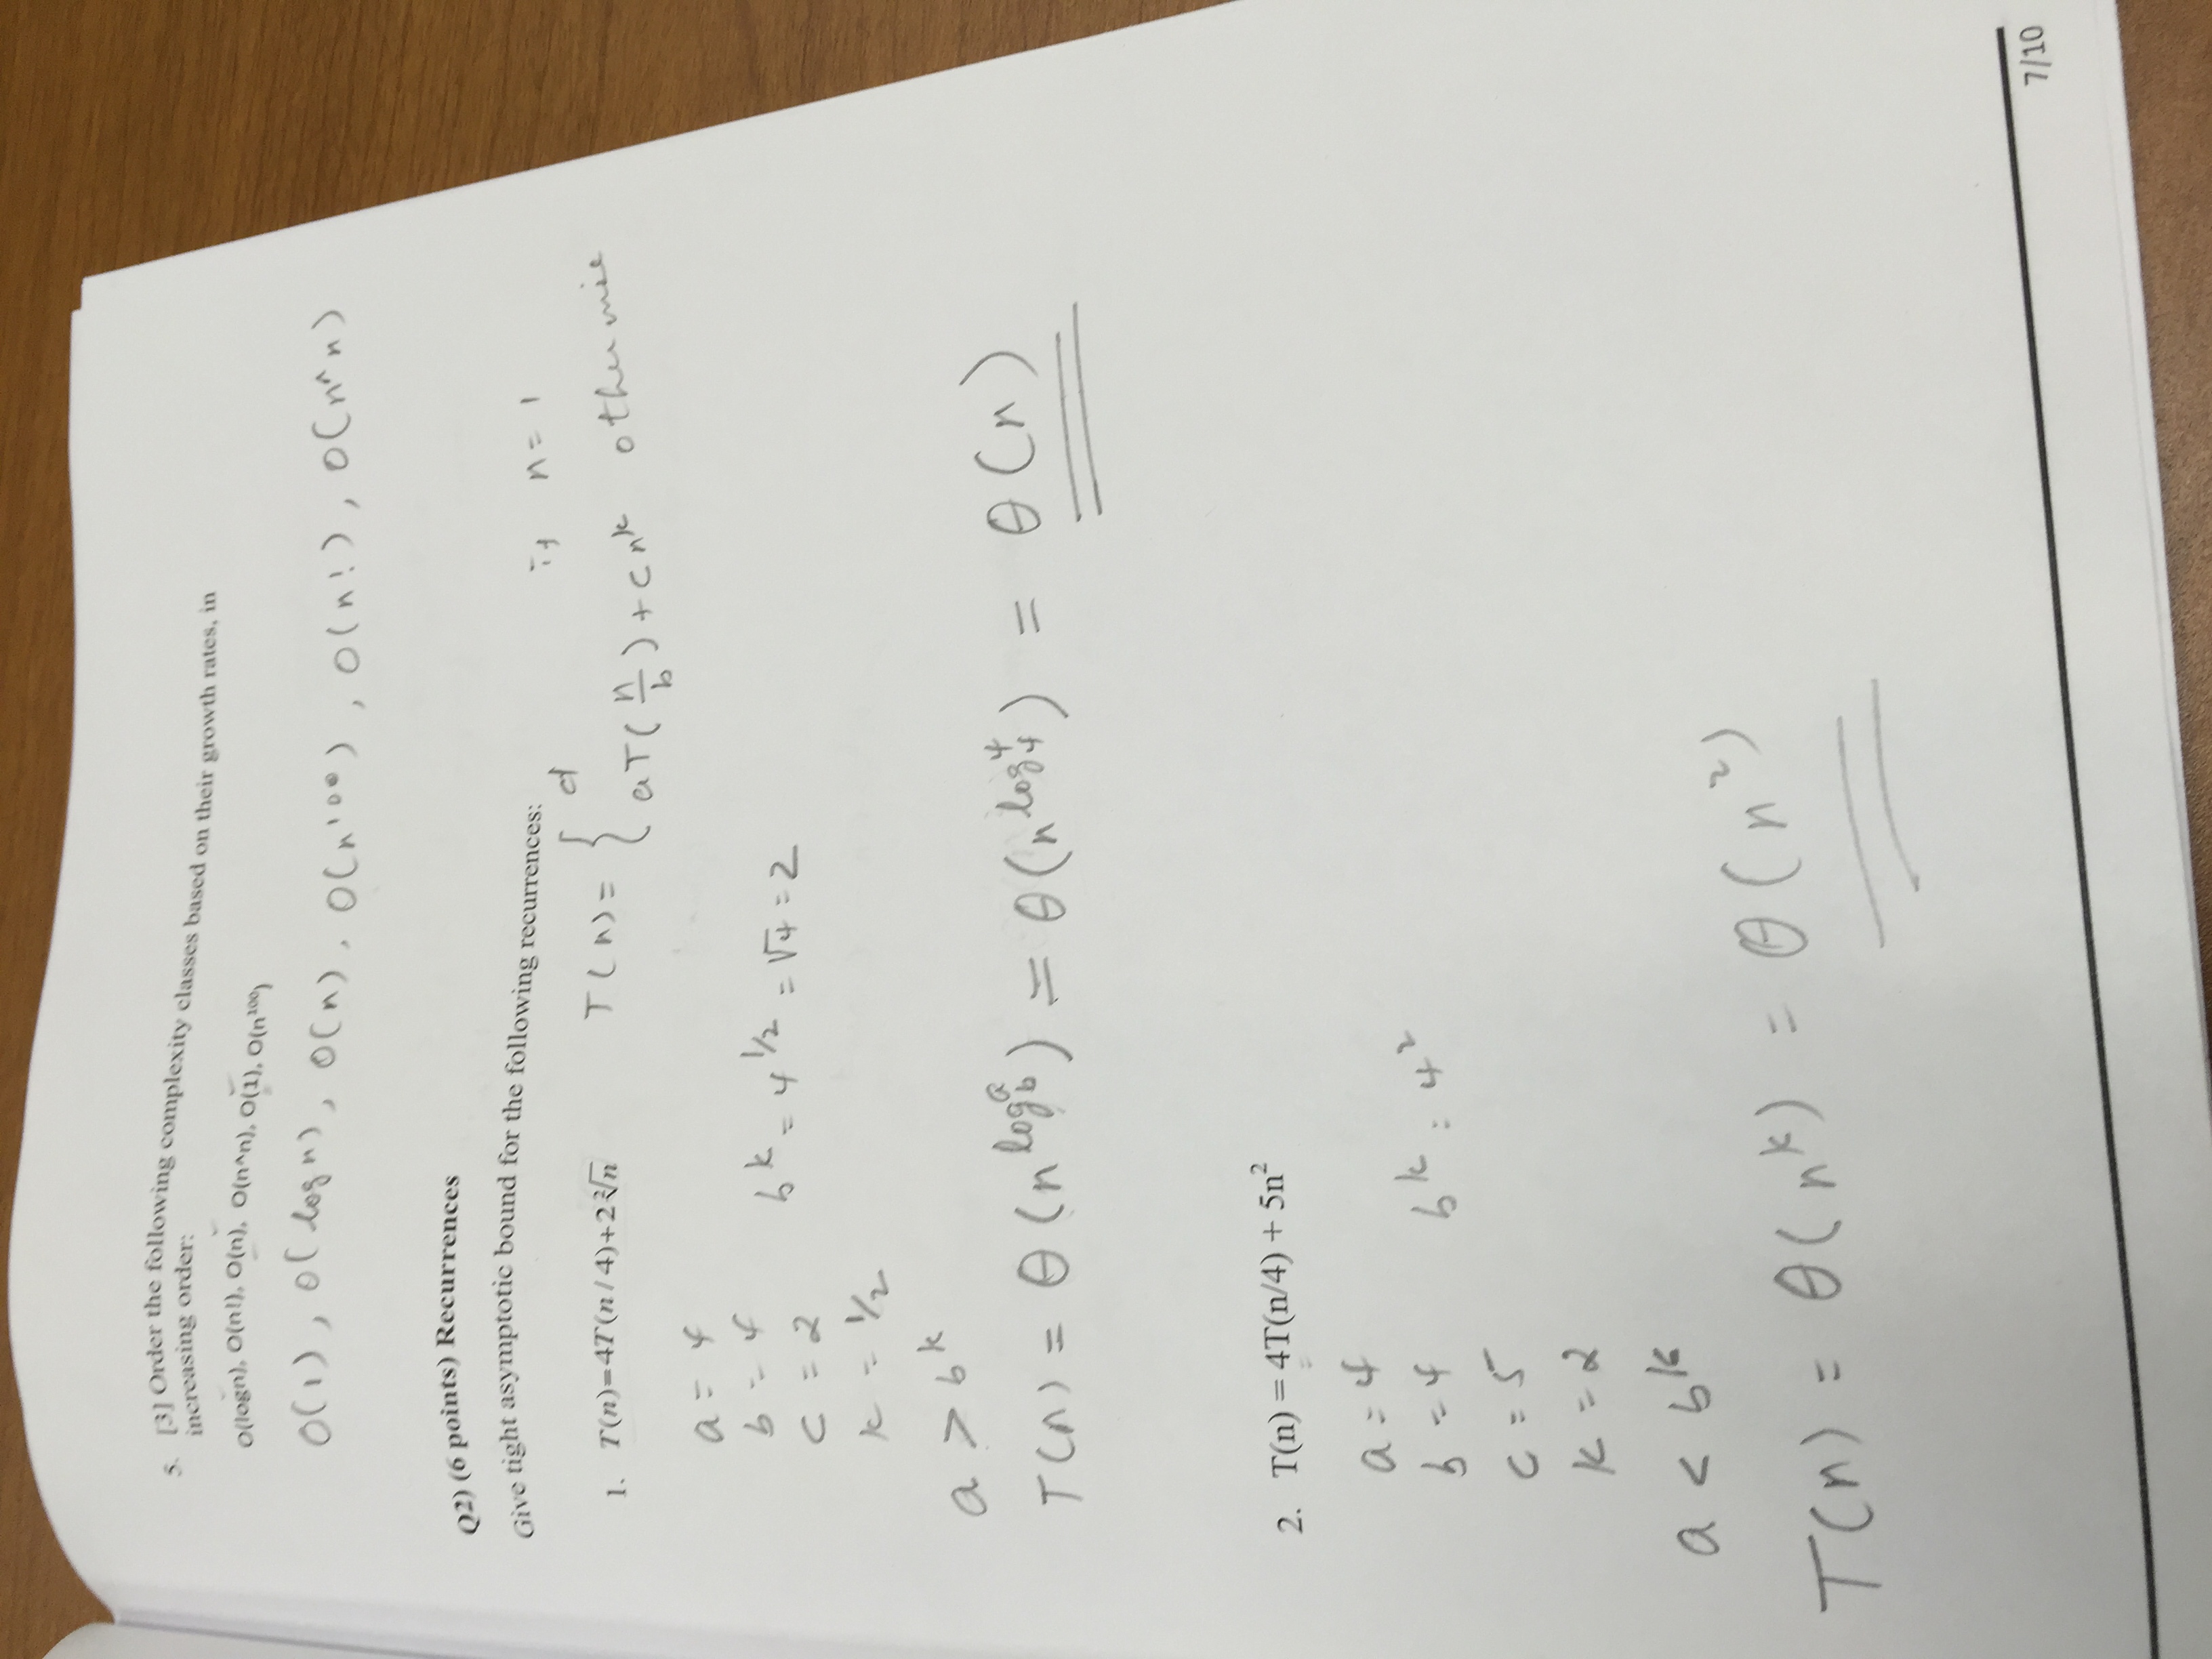 5. [3] Order the following complexity classes based on their growth rates, in
increasing order:
O(logn), O(n!), O(n), O(n^n), O(1), O(n¹⁰⁰)
O(1), O(log n), O(n), O(n¹⁰⁰), O(n!), O(n^n)
Q2) (6 points) Recurrences
Give tight asymptotic bound for the following recurrences:
1. T(n)=4T(n/4)+2²√n
T(n) = { d if n = 1
aT(n/b) + cnᵏ otherwise
a = 4
b = 4
c = 2
k = 1/2
bᵏ = 4^1/2 = √4 = 2
a > bᵏ
T(n) = θ(n^log_b^a) = θ(n^log_4^4) = θ(n)
2. T(n) = 4T(n/4) + 5n²
a = 4
b = 4
c = 5
k = 2
bᵏ = 4²
a < bᵏ
T(n) = θ(nᵏ) = θ(n²)
7/10